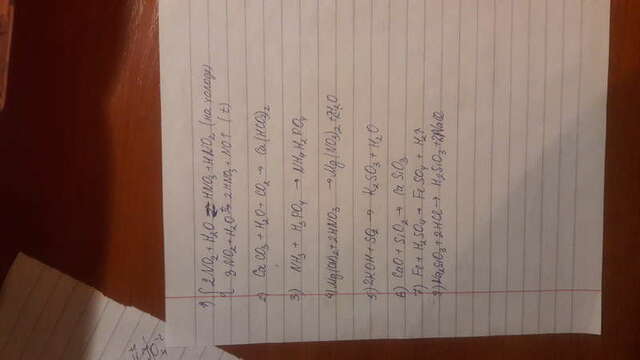 1) { 2NO2 + H2O ⇄ HNO3 + HNO2 (на холоде)
{ 3NO2 + H2O ⇄ 2HNO3 + NO↑ (t)
2) CaCO3 + H2O + CO2 → Ca(HCO3)2
3) NH3 + H3PO4 → NH4H2PO4
4) Mg(OH)2 + 2HNO3 → Mg(NO3)2 + 2H2O
5) 2KOH + SO2 → K2SO3 + H2O
6) CaO + SiO2 → CaSiO3
7) Fe + H2SO4 → FeSO4 + H2↑
8) Na2SiO3 + 2HCl → H2SiO3 + 2NaCl